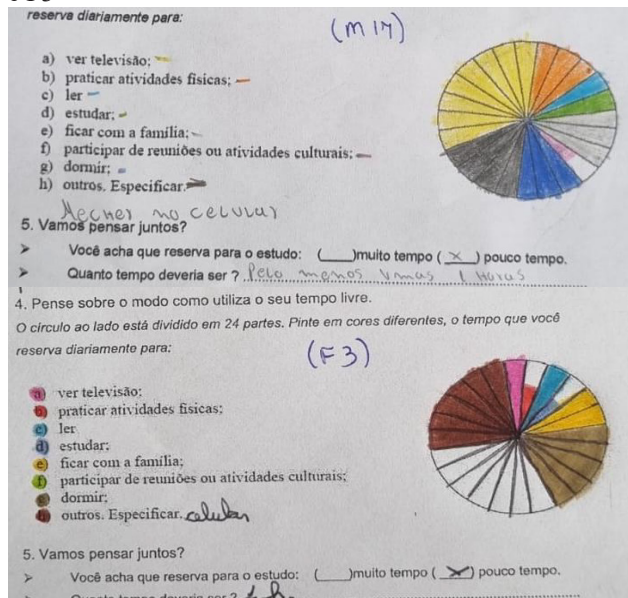 reserva diariamente para:
(M 17)
a) ver televisão;
b) praticar atividades físicas;
c) ler
d) estudar;
e) ficar com a família;
f) participar de reuniões ou atividades culturais;
g) dormir;
h) outros. Especificar.
Mecher no celular
5. Vamos pensar juntos?
➢ Você acha que reserva para o estudo: (___)muito tempo ( X ) pouco tempo.
➢ Quanto tempo deveria ser ? Pelo menos umas 1 Horas
4. Pense sobre o modo como utiliza o seu tempo livre.
O círculo ao lado está dividido em 24 partes. Pinte em cores diferentes, o tempo que você
reserva diariamente para:
(F3)
a) ver televisão;
b) praticar atividades físicas;
c) ler
d) estudar;
e) ficar com a família;
f) participar de reuniões ou atividades culturais;
dormir;
outros. Especificar. celular
5. Vamos pensar juntos?
➢ Você acha que reserva para o estudo: (___)muito tempo ( X ) pouco tempo.